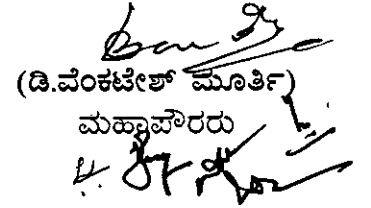 (ಡಿ.ವೆಂಕಟೇಶ್ ಮೂರ್ತಿ)
ಮಹಾಪೌರರು